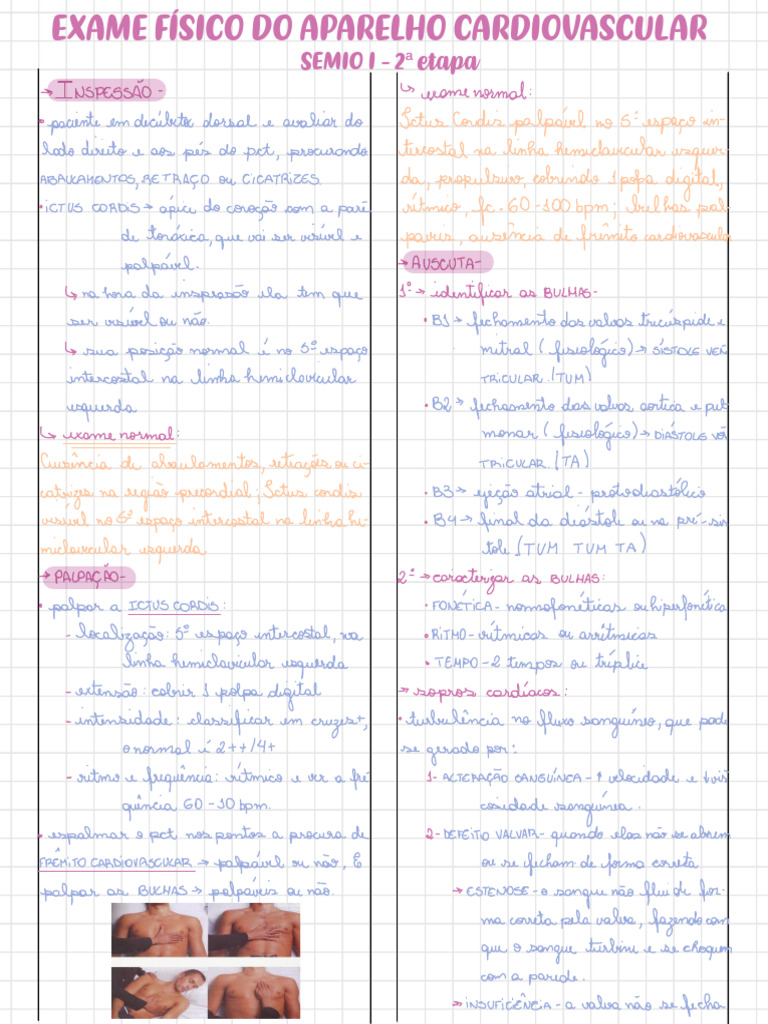 EXAME FÍSICO DO APARELHO CARDIOVASCULAR
SEMIO 1 - 2ª etapa
→ INSPESSÃO -
• paciente em decúbito dorsal e avaliar do
lado direito e aos pés do pct, procurando
ABAULAMENTOS, RETRAÇO OU CICATRIZES.
• ICTUS CORDIS → ápice do coração com a pare
de torácica, que vai ser visível e
palpável.
↳ na hora da inspessão ela tem que
ser visível ou não.
↳ sua posição normal é no 5º espaço
intercostal na linha hemiclavicular
esquerda
↳ exame normal:
Ausência de abaulamentos, retrações ou ci-
catrizes na região precordial; Ictus cordis
visível no 5º espaço intercostal na linha he-
miclavicular esquerda
→ PALPAÇÃO -
• palpar a ICTUS CORDIS:
- localização: 5º espaço intercostal, na
linha hemiclavicular esquerda
- extensão: cobrir 1 polpa digital
- intensidade: classificar em cruzes+,
o normal é 2++/4+
- ritmo e frequência: rítmico e ver a fre
quência 60-10 bpm.
• espalmar o pct nos pontos a procura de
FRÊMITO CARDIOVASCULAR → palpável ou não, E
palpar as BULHAS → palpáveis ou não.
↳ exame normal:
Ictus Cordis palpável no 5º espaço in-
tercostal na linha hemiclavicular esquer-
da, propulsivo, cobrindo 1 polpa digital,
rítmico, fc. 60-100 bpm; bulhas pal
paveis, ausência de frêmito cardiovascula
→ AUSCUTA -
1º → identificar as BULHAS -
• B1 → fechamento das valvas tricúspide e
mitral (fisiológico) → SÍSTOLE VEN
TRICULAR. (TUM)
• B2 → fechamento das valvas aortica e pul
monar (fisiológico) → DIÁSTOLE VEN
TRICULAR. (TA)
• B3 → ejeção atrial - protodiastólico
• B4 → final da diástole ou na pré-sis
tole (TUM TUM TA)
2º → caracterizar as BULHAS:
• FONÉTICA - normofonéticas ou hiperfonética
• RITMO - rítmicas ou arrítmicas
• TEMPO - 2 tempos ou tríplice
→ sopros cardíacos:
• turbulência no fluxo sanguíneo, que pode
se gerado por:
1- ALTERAÇÃO SANGUÍNEA - ↑ velocidade e ↓ vis
cosidade sanguínea.
2- DEFEITO VALVAR - quando elas não se abrem
ou se fecham de forma correta
→ ESTENOSE - o sangue não flui de for
ma correta pela valva, fazendo com
que o sangue turbine e se choque
com a parede.
→ INSUFICIÊNCIA - a valva não se fecha